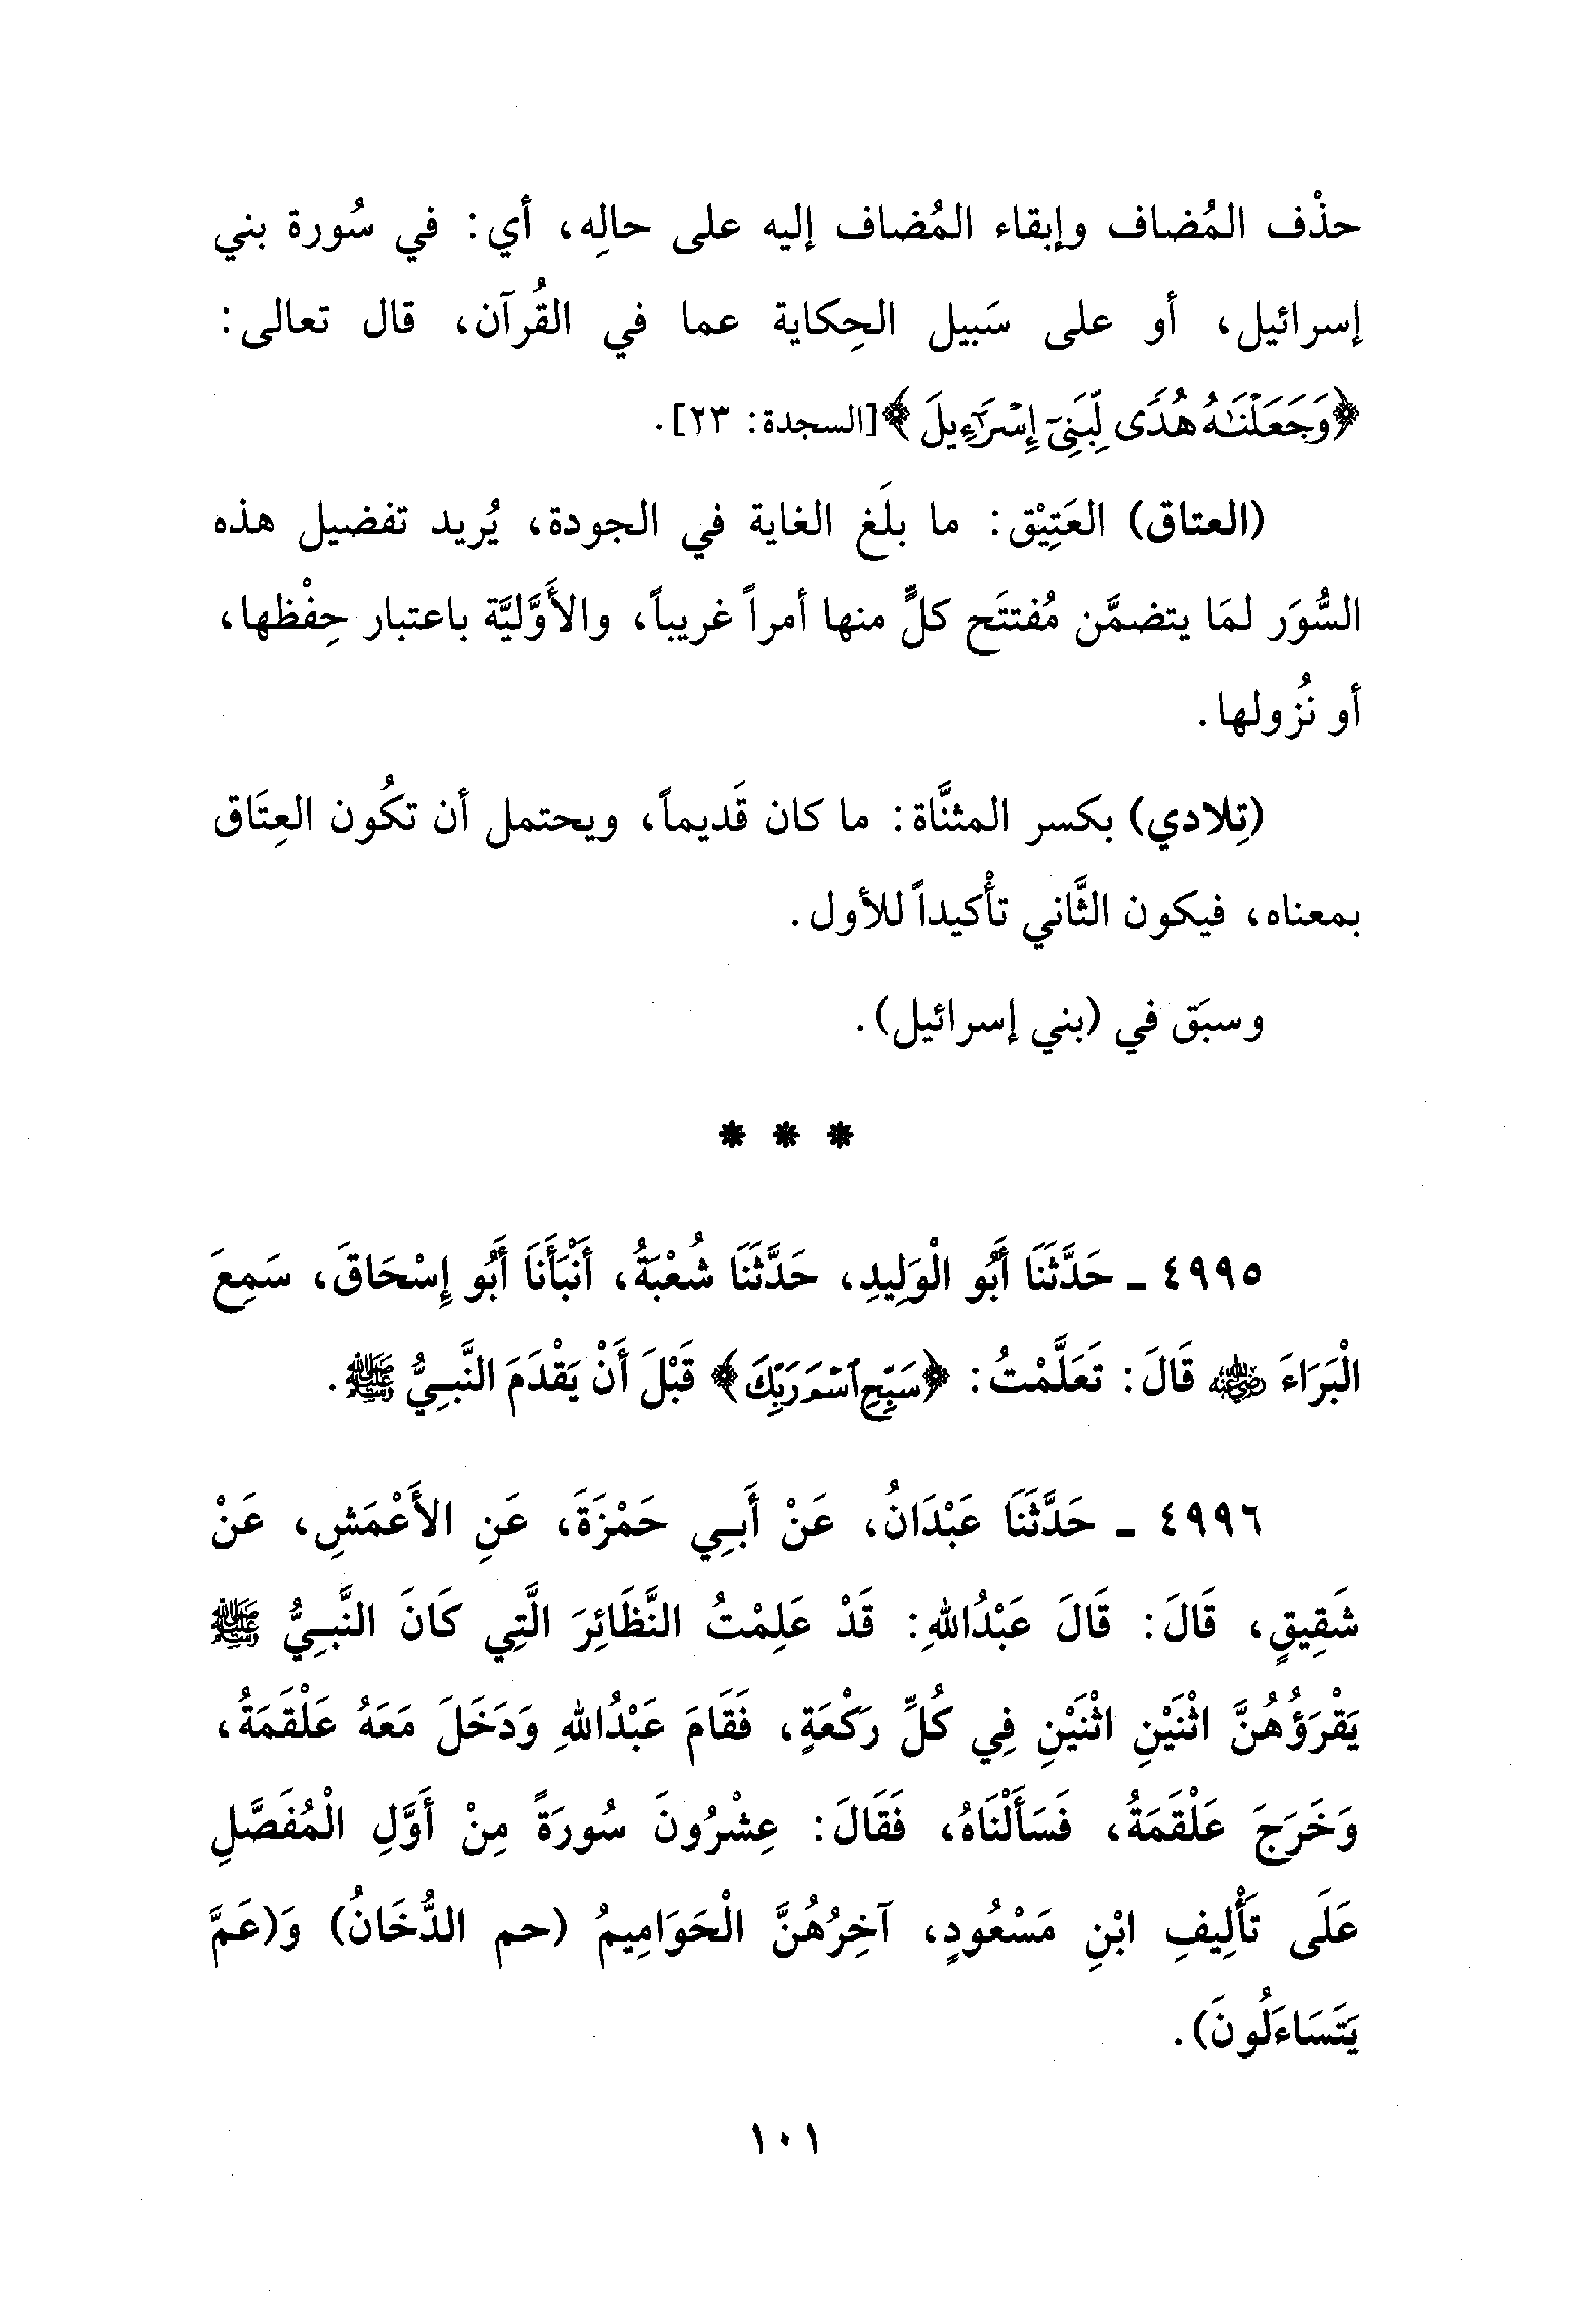 حذْف المُضاف وإبقاء المُضاف إليه على حالِه، أي: في سُورة بني
إسرائيل، أو على سَبيل الحِكاية عما في القُرآن، قال تعالى:
﴿وَجَعَلْنَٰهُ هُدًى لِّبَنِىٓ إِسْرَٰٓءِيلَ﴾ [السجدة: ٢٣].
(العتاق) العَتِيْق: ما بلَغ الغاية في الجودة، يُريد تفضيل هذه
السُّوَر لمَا يتضمَّن مُفتتَح كلٍّ منها أمراً غريباً، والأَوَّليَّة باعتبار حِفْظها،
أو نُزولها.
(تِلادي) بكسر المثنَّاة: ما كان قَديماً، ويحتمل أن تكُون العِتَاق
بمعناه، فيكون الثَّاني تأْكيداً للأول.
وسبَق في (بني إسرائيل).
* * *
٤٩٩٥ - حَدَّثَنَا أَبُو الْوَلِيدِ، حَدَّثَنَا شُعْبَةُ، أَنْبَأَنَا أَبُو إِسْحَاقَ، سَمِعَ
الْبَرَاءَ رضي الله عنه قَالَ: تَعَلَّمْتُ: ﴿سَبِّحِ ٱسْمَ رَبِّكَ﴾ قَبْلَ أَنْ يَقْدَمَ النَّبِيُّ ﷺ.
٤٩٩٦ - حَدَّثَنَا عَبْدَانُ، عَنْ أَبِي حَمْزَةَ، عَنِ الأَعْمَشِ، عَنْ
شَقِيقٍ، قَالَ: قَالَ عَبْدُاللهِ: قَدْ عَلِمْتُ النَّظَائِرَ الَّتِي كَانَ النَّبِيُّ ﷺ
يَقْرَؤُهُنَّ اثْنَيْنِ اثْنَيْنِ فِي كُلِّ رَكْعَةٍ، فَقَامَ عَبْدُاللهِ وَدَخَلَ مَعَهُ عَلْقَمَةُ،
وَخَرَجَ عَلْقَمَةُ، فَسَأَلْنَاهُ، فَقَالَ: عِشْرُونَ سُورَةً مِنْ أَوَّلِ الْمُفَصَّلِ
عَلَى تَأْلِيفِ ابْنِ مَسْعُودٍ، آخِرُهُنَّ الْحَوَامِيمُ (حم الدُّخَانُ) وَ(عَمَّ
يَتَسَاءَلُونَ).
١٠١